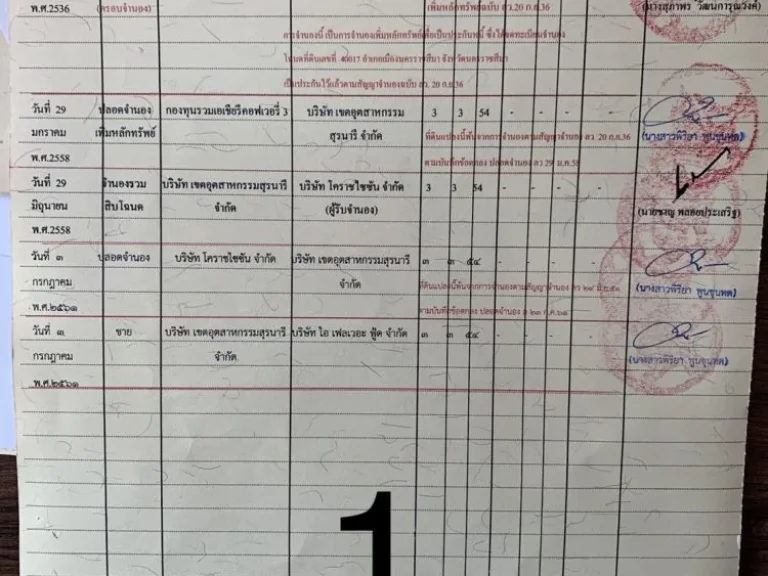 พ.ศ.2536 (ครอบจำนอง) เพิ่มหลักทรัพย์ฉบับ ลว.20 ก.ย.36 (นางสุภาพร วัฒนการุณวงศ์)
การจำนองนี้ เป็นการจำนองเพิ่มหลักทรัพย์เพื่อเป็นประกันหนี้ ซึ่งได้จดทะเบียนจำนอง
โฉนดที่ดินเลขที่ 40017 อำเภอเมืองนครราชสีมา จังหวัดนครราชสีมา
เป็นประกันไว้แล้วตามสัญญาจำนองฉบับ ลว. 20 ก.ย.36
วันที่ 29 ปลอดจำนอง กองทุนรวมเอเชียรีคอฟเวอรี่ 3 บริษัท เขตอุตสาหกรรม 3 3 54 - - - -
มกราคม เพิ่มหลักทรัพย์ สุรนารี จำกัด ที่ดินแปลงนี้พ้นจากการจำนองตามสัญญาจำนอง ลว 20 ก.ย.36 (นางสาวพิริยา พูนขุนทด)
พ.ศ.2558 ตามบันทึกข้อตกลง ปลอดจำนอง ลว 29 ม.ค.58
วันที่ 29 จำนองรวม บริษัท เขตอุตสาหกรรมสุรนารี บริษัท โคราชไซซัน จำกัด 3 3 54 - - - -
มิถุนายน สิบโฉนด จำกัด (ผู้รับจำนอง) (นายชาญ พลอยประเสริฐ)
พ.ศ.2558
วันที่ ๓ ปลอดจำนอง บริษัท โคราชไซซัน จำกัด บริษัท เขตอุตสาหกรรมสุรนารี ๓ ๓ ๕๔ - - - -
กรกฎาคม จำกัด ที่ดินแปลงนี้พ้นจากการจำนองตามสัญญาจำนอง ลว ๒๙ มิ.ย.๕๘ (นางสาวพิริยา พูนขุนทด)
พ.ศ.๒๕๖๑ ตามบันทึกข้อตกลง ปลอดจำนอง ล ๓ ก.ค.๖๑
วันที่ ๓ ขาย บริษัท เขตอุตสาหกรรมสุรนารี บริษัท ไอ เฟลเวอะ ฟู้ด จำกัด ๓ ๓ ๕๔ - - - -
กรกฎาคม จำกัด (นางสาวพิริยา พูนขุนทด)
พ.ศ.๒๕๖๑
1